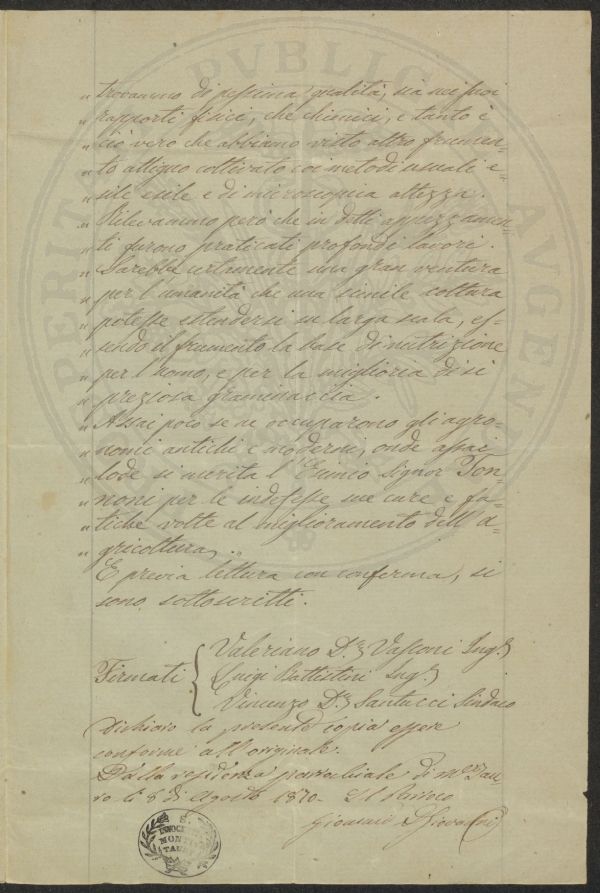 " trovammo di pessima qualità, sia nei suoi
" rapporti fisici, che chimici, e tanto è
" ciò vero che abbiamo visto altro frumen=
" to attiguo coltivato coi metodi usuali e=
" sile esile e di microscopica altezza.
" Rilevammo però che in detti appezzamen=
" ti furono praticati profondi lavori.
" Sarebbe certamente una gran ventura
" per l'umanità che una simile coltura
" potesse estendersi su larga scala, es=
" sendo il frumento la base di nutrizione
" per l'uomo, e per la miglioria di sì
" preziosa graminaccia.
" Assai poco se ne occuparono gli agro=
" nomi antichi e moderni, onde assai
" lode si merita l' Signor Ton=
" noni per le indefesse sue cure e fa=
" tiche volte al miglioramento dell'a=
" gricoltura, ..
E previa lettura con conferma, si
sono sottoscritti.
Firmati {
Valeriano D.r Vasconi Ing.r
Luigi Battistini Ing.r
Vincenzo D.r Santucci Sindaco
Dichiaro la presente copia essere
conforme all'originale.
Dalla residenza parrocchiale di M.te Tau=
ro li 8 di Agosto 1870 - Il Parroco
Giovanni